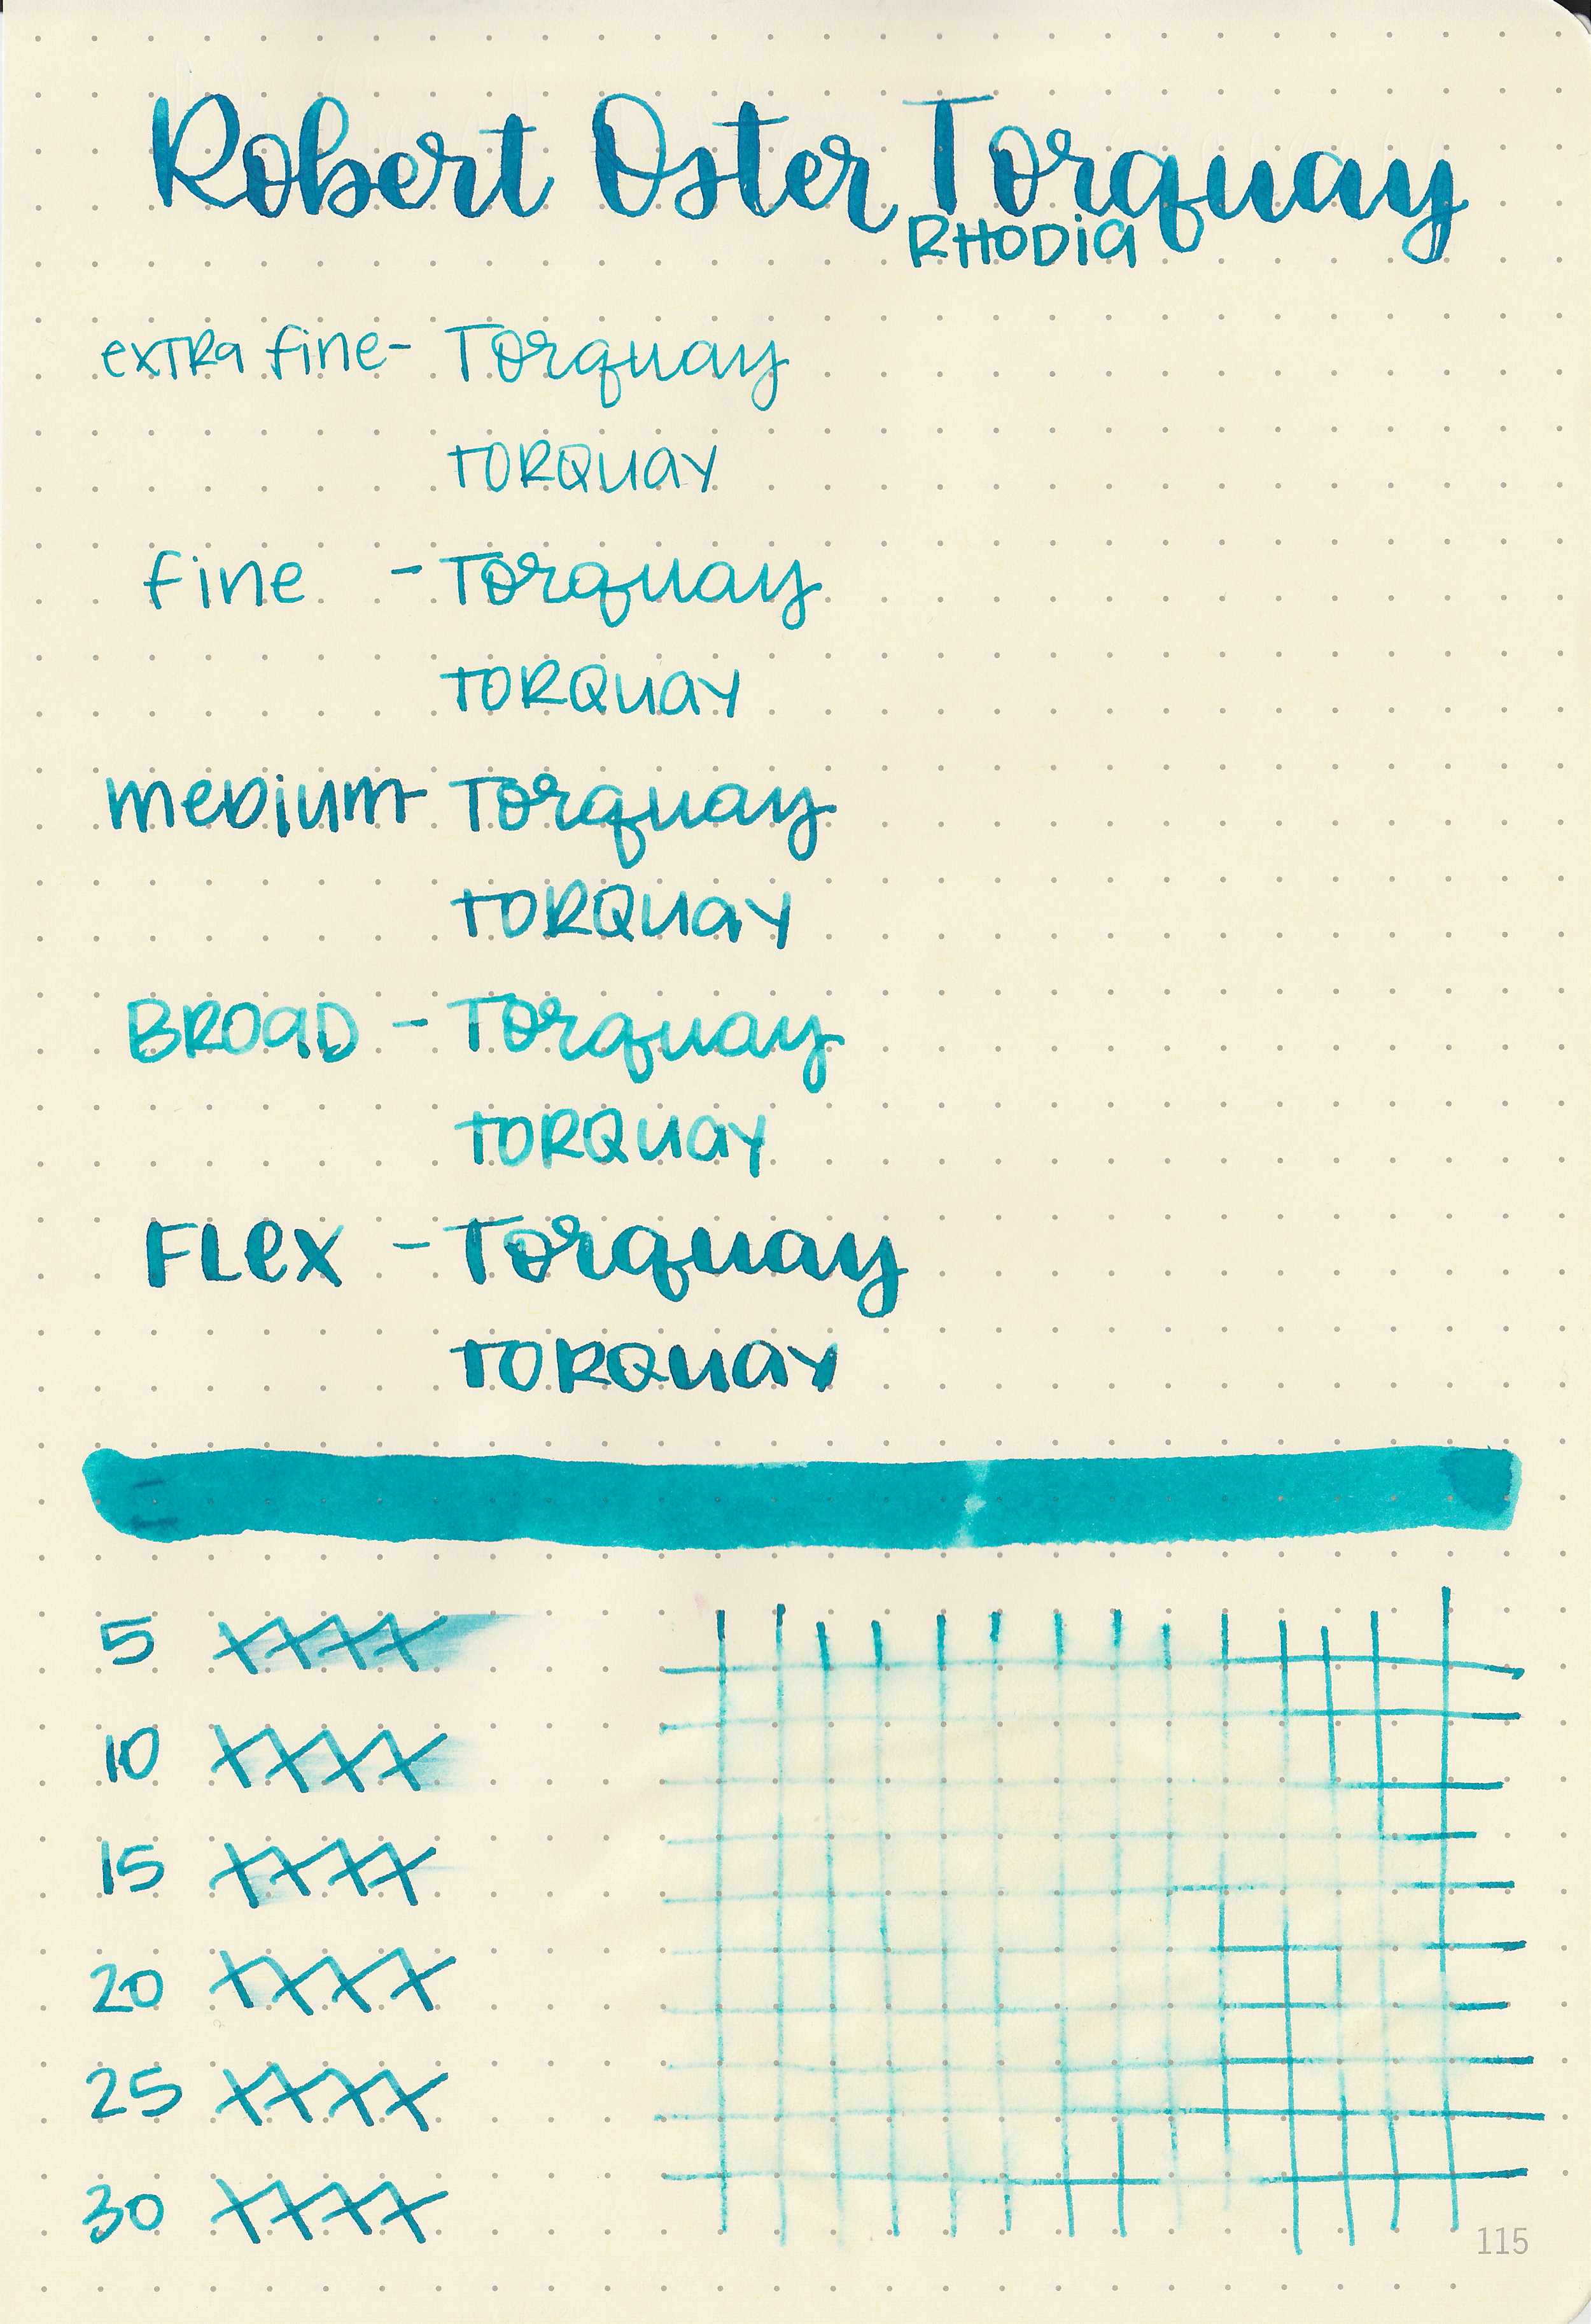 Robert Oster Torquay
RHODIa
exTRa fine- Torquay
TORQuay
fine - Torquay
TORQuay
meDium- Torquay
TORQuay
BROaD - Torquay
TORQuay
FLex - Torquay
TORQuay
5 XXXX
10 XXXX
15 XXXX
20 XXXX
25 XXXX
30 XXXX
115